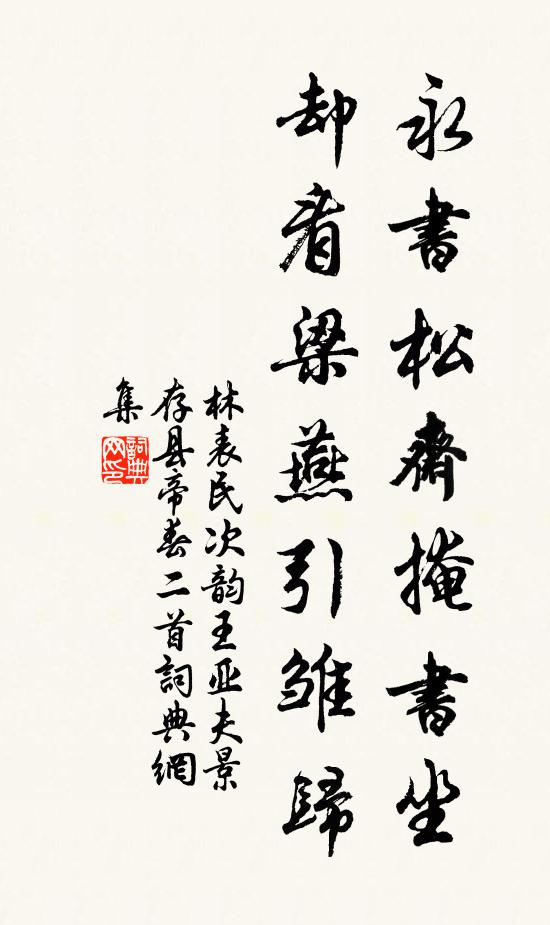 永書松齋掩書坐
却看梁燕引雏歸
林表民次韵王亚夫景
存县帝春二首詞典網
集
詞典
网印